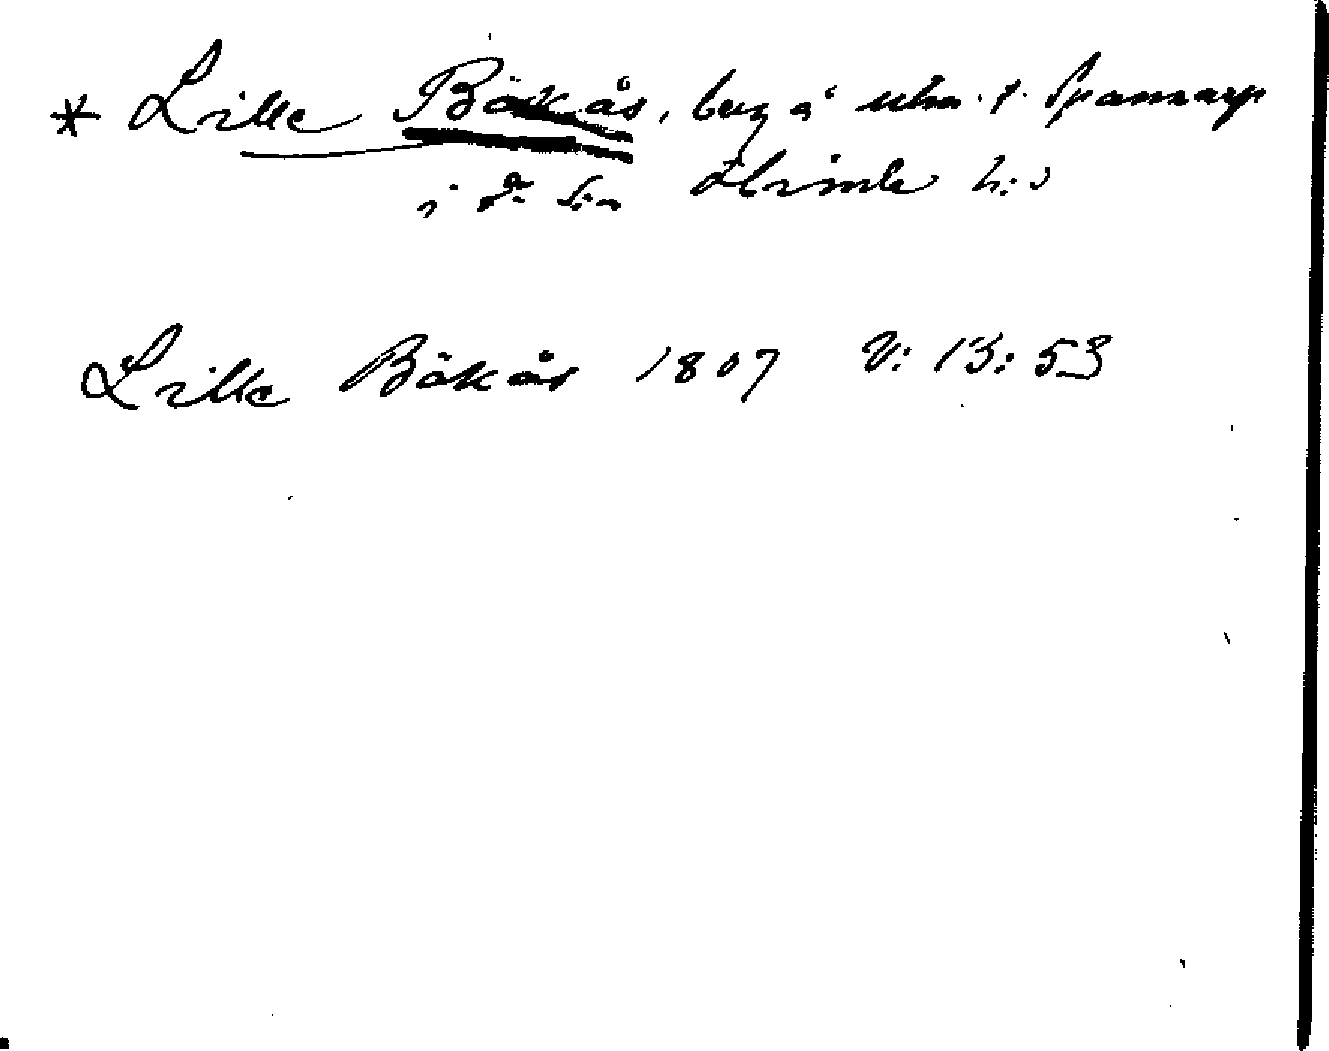 * Lille Bökås, byg å uhn. t. Spannarp
i d. sn Himle h:d
Lille Bökås 1807 V: 13: 53